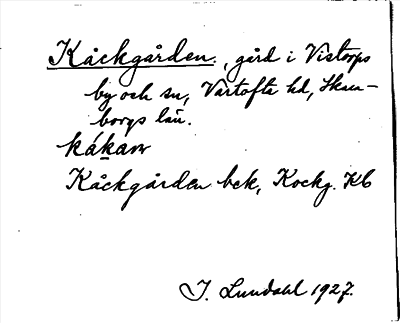 Kåckgården, gård i Vistorps
by och sn, Vartofta hd, Skara-
borgs län.
kákaṇ
Kåckgården bek, Kockg. Kb
I. Lundahl 1927.